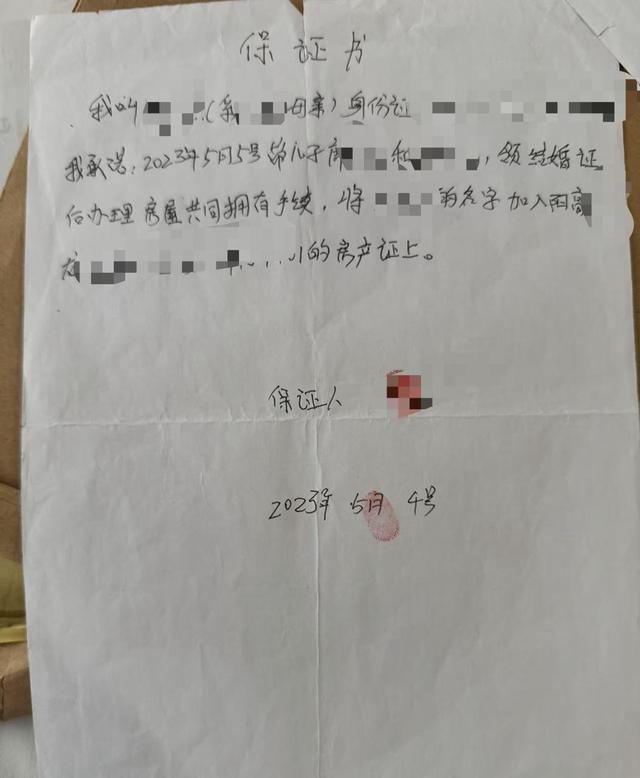 保证书
我叫(系母亲)身份证
我承诺:2023年5月5号给儿子和,领结婚证
后办理房屋共同拥有手续,将的名字加入
的房产证上。
保证人
2023年5月4号